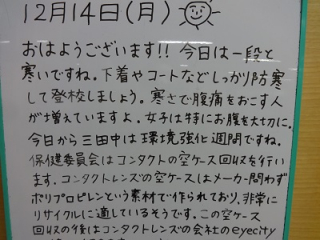 12月14日(月)
おはようございます!! 今日は一段と
寒いですね。下着やコートなどしっかり防寒
して登校しましょう。寒さで腹痛をおこす人
が増えていますよ。女子は特にお腹を大切に。
今日から三田中は環境強化週間ですね。
保健委員会はコンタクトの空ケース回収を行い
ます。コンタクトレンズの空ケースはメーカー問わず
ポリプロピレンという素材で作られており、非常に
リサイクルに適しているそうです。この空ケース
回収の後はコンタクトレンズの会社のeyecity